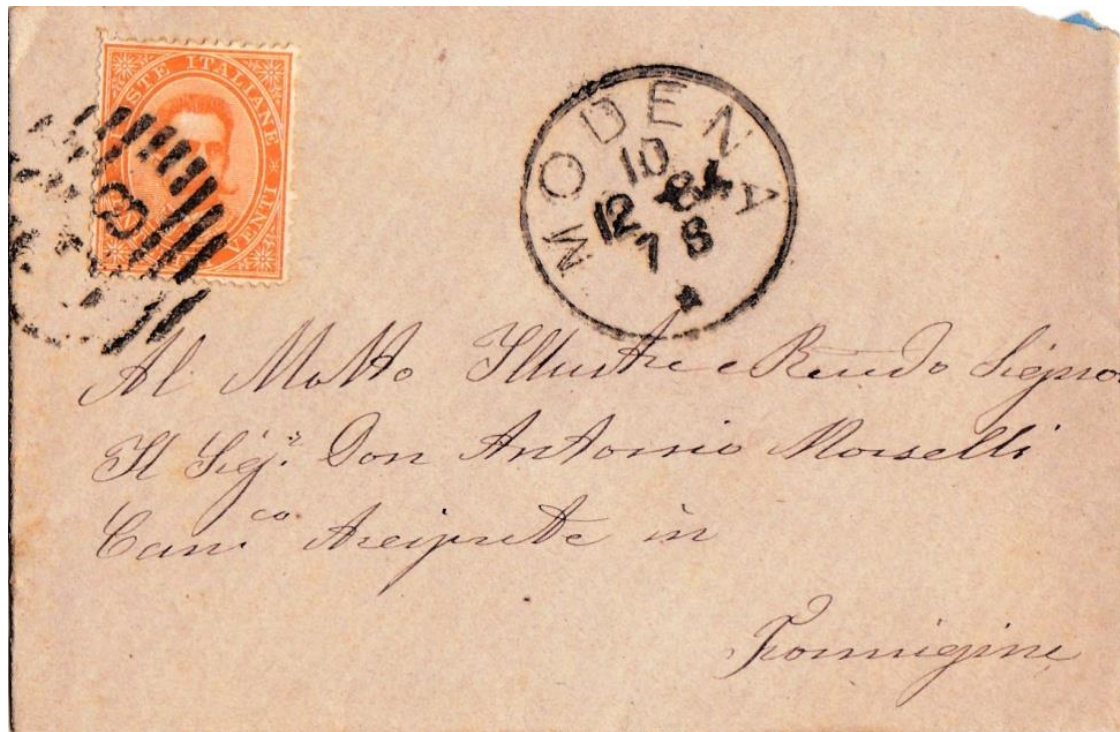 POSTE ITALIANE * VENTI
MODENA
10
12 84
7 S
Al Molto Illustre e Revdo Signo
Il Sigr. Don Antonio Morselli
Canco Arciprete in
Formigine